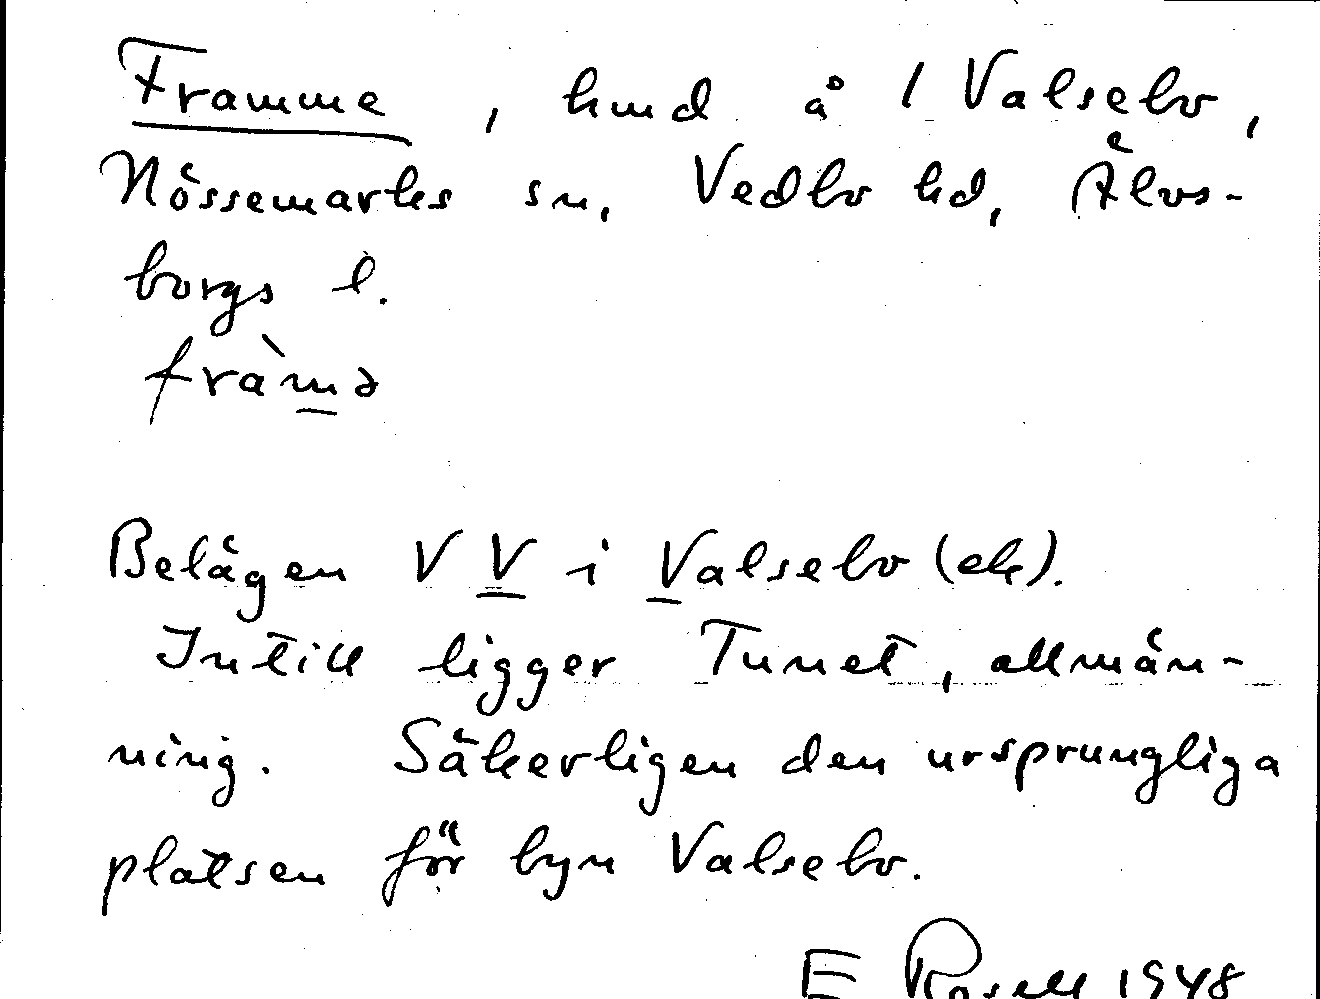 Framme, hmd å 1 Valsebo,
Nössemarks sn, Vedbo hd, Älvs-
borgs l.
fràmə
Belägen V V i Valsebo (ek).
Intill ligger Tunet, allmän-
ning. Säkerligen den ursprungliga
platsen för byn Valsebo.
E Rosell 1948